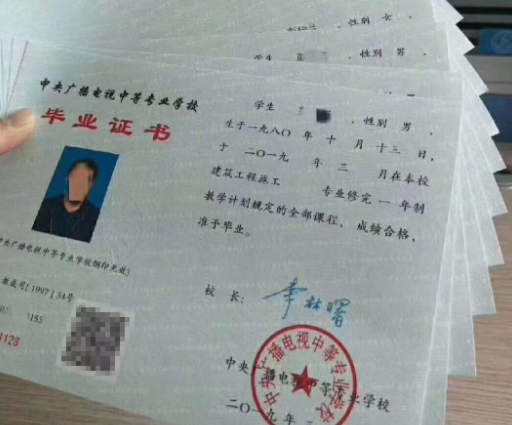 性别 女,
学生
性别 男,
中央广播电视中等专业学校
毕业证书
中央广播电视中等专业学校钢印无效)
教成号[1997]34号
155
1128
学生
,性别 男,
生于一九八〇年 十 月 十三 日,
于 二〇一九 年 三 月在本校
建筑工程施工 专业修完 一 年制
教学计划规定的全部课程,成绩合格,
准予毕业。
校 长:
李林曙
中央广播电视中等专业学校
中央广播电视中等专业学校
二〇一九年